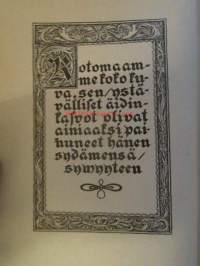 Kotomaam-
me koko ku-
va, sen/ystä-
välliset äidin-
kasvot olivat
ainiaaksi pai-
nuneet hänen
sydämensä/
syvyyteen